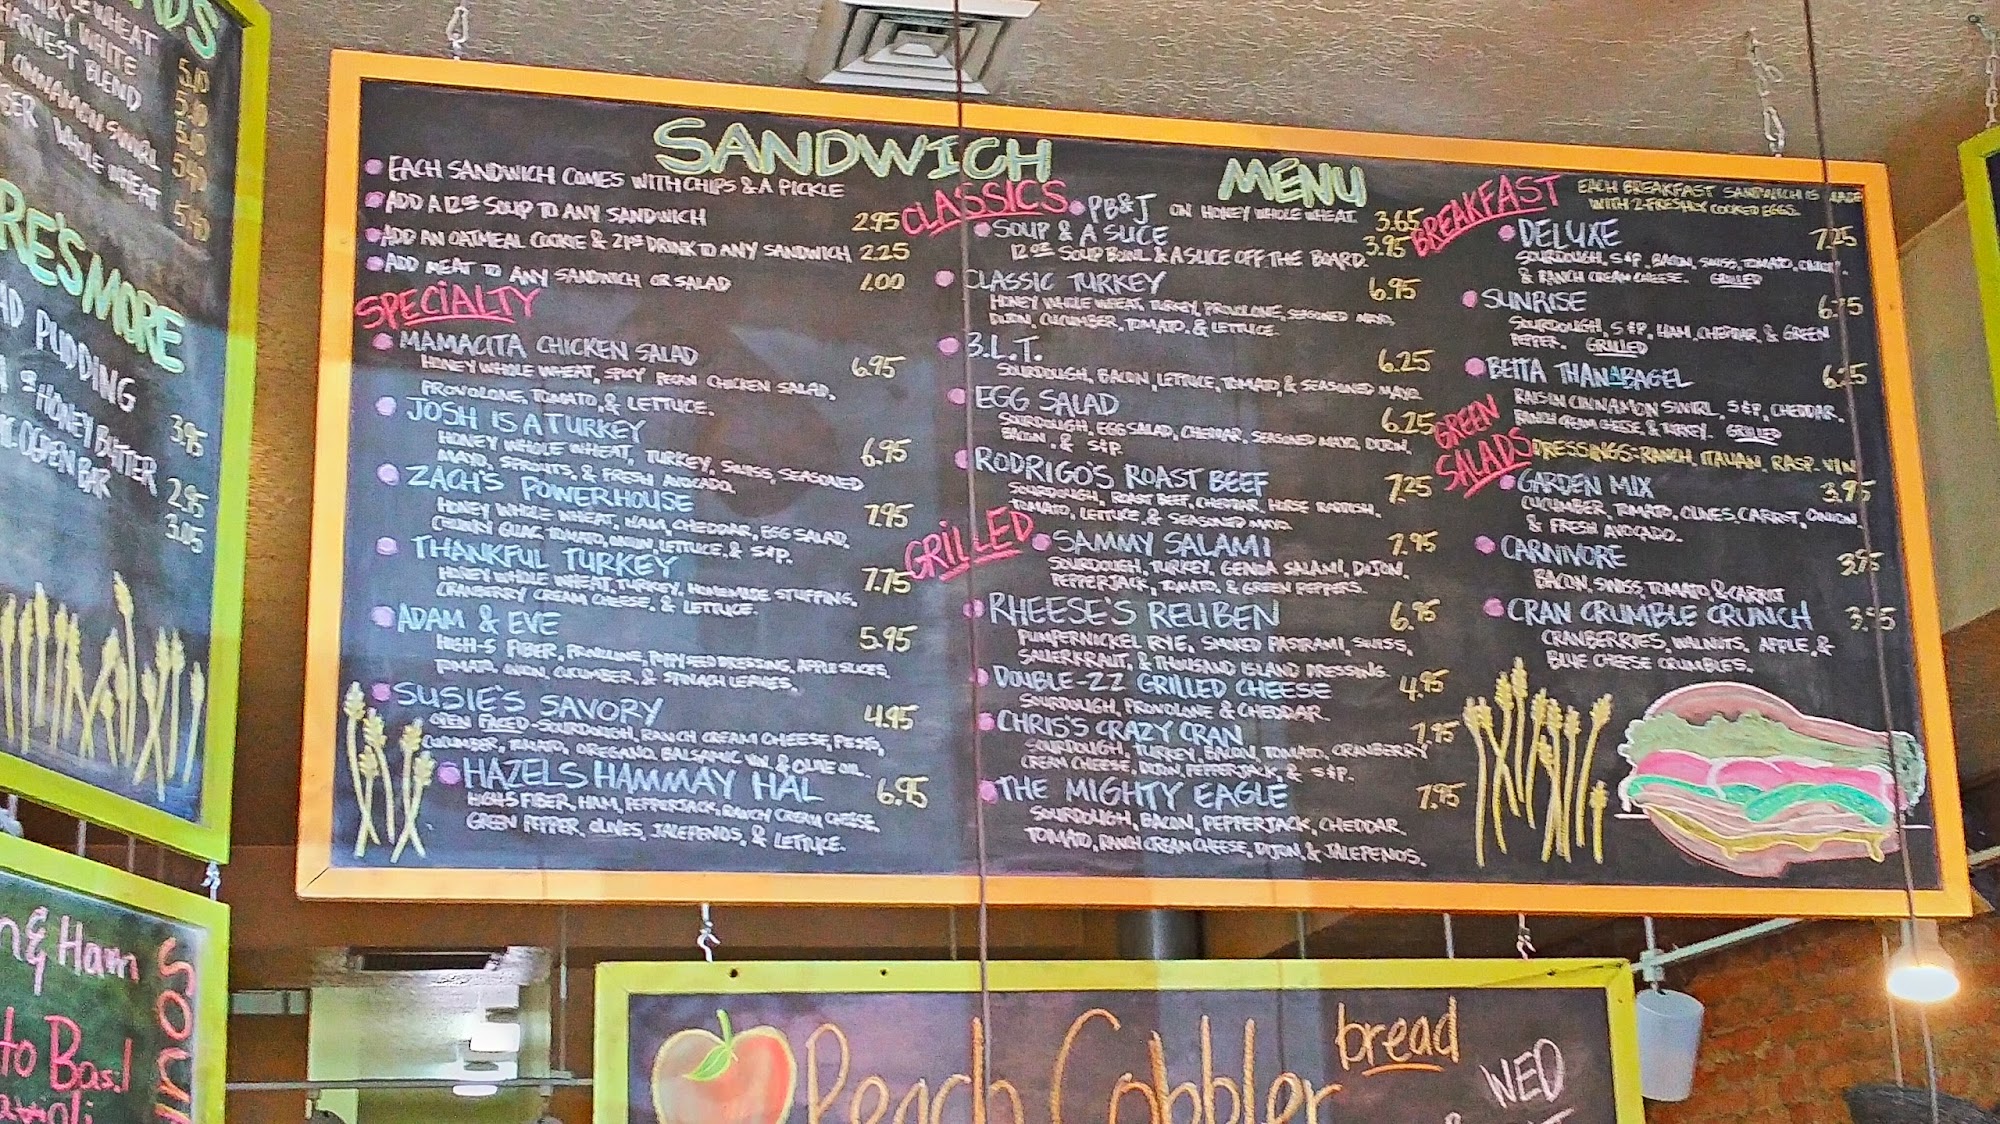 WHEAT
WHITE 5.10
HARVEST BLEND 5.10
CINNAMON SWIRL 5.10
WHOLE WHEAT 5.40
5.40
RE'S MORE
PUDDING 3.95
HONEY BUTTER 2.95
OPEN BAR 3.05
& Ham
to Basil
SANDWICH MENU
EACH SANDWICH COMES WITH CHIPS & A PICKLE
ADD A 12oz SOUP TO ANY SANDWICH 2.95
ADD AN OATMEAL COOKIE & 21oz DRINK TO ANY SANDWICH 2.25
ADD MEAT TO ANY SANDWICH OR SALAD 1.00
SPECIALTY
MAMACITA CHICKEN SALAD 6.95
HONEY WHOLE WHEAT, SPICY PECAN CHICKEN SALAD,
PROVOLONE, TOMATO, & LETTUCE.
JOSH IS A TURKEY 6.95
HONEY WHOLE WHEAT, TURKEY, SWISS, SEASONED
MAYO, SPROUTS, & FRESH AVOCADO.
ZACH'S POWERHOUSE 7.95
HONEY WHOLE WHEAT, HAM, CHEDDAR, EGG SALAD,
CHUNKY GUAC, TOMATO, ONION, LETTUCE, & S&P.
THANKFUL TURKEY 7.75
HONEY WHOLE WHEAT, TURKEY, HOMEMADE STUFFING,
CRANBERRY CREAM CHEESE, & LETTUCE.
ADAM & EVE 5.95
HIGH-5 FIBER, PROVOLONE, POPPY SEED DRESSING, APPLE SLICES,
TOMATO, ONION, CUCUMBER, & SPINACH LEAVES.
SUSIE'S SAVORY 4.95
OPEN FACED - SOURDOUGH, RANCH CREAM CHEESE, PESTO,
CUCUMBER, TOMATO, OREGANO, BALSAMIC VIN. & OLIVE OIL.
HAZELS HAMMAY HAL 6.95
HIGH 5 FIBER, HAM, PEPPERJACK, RANCH CREAM CHEESE,
GREEN PEPPER, OLIVES, JALEPENOS, & LETTUCE.
CLASSICS
PB&J ON HONEY WHOLE WHEAT 3.65
SOUP & A SLICE 3.95
12 oz SOUP BOWL & A SLICE OFF THE BOARD.
CLASSIC TURKEY 6.95
HONEY WHOLE WHEAT, TURKEY, PROVOLONE, SEASONED MAYO,
DIJON, CUCUMBER, TOMATO, & LETTUCE.
B.L.T. 6.25
SOURDOUGH, BACON, LETTUCE, TOMATO, & SEASONED MAYO.
EGG SALAD 6.25
SOURDOUGH, EGG SALAD, CHEDDAR, SEASONED MAYO, DIJON,
BACON, & S&P.
RODRIGO'S ROAST BEEF 7.25
SOURDOUGH, ROAST BEEF, CHEDDAR, HORSE RADISH,
TOMATO, LETTUCE, & SEASONED MAYO
GRILLED
SAMMY SALAMI 7.95
SOURDOUGH, TURKEY, GENOA SALAMI, DIJON,
PEPPERJACK, TOMATO, & GREEN PEPPERS.
RHEESE'S REUBEN 6.95
PUMPERNICKEL RYE, SMOKED PASTRAMI, SWISS,
SAUERKRAUT, & THOUSAND ISLAND DRESSING.
DOUBLE-ZZ GRILLED CHEESE 4.95
SOURDOUGH, PROVOLONE & CHEDDAR.
CHRIS'S CRAZY CRAN 7.95
SOURDOUGH, TURKEY, BACON, TOMATO, CRANBERRY
CREAM CHEESE, DIJON, PEPPERJACK, & S&P.
THE MIGHTY EAGLE 7.95
SOURDOUGH, BACON, PEPPERJACK, CHEDDAR,
TOMATO, RANCH CREAM CHEESE, DIJON, & JALEPENOS.
BREAKFAST
EACH BREAKFAST SANDWICH IS MADE
WITH 2 FRESHLY COOKED EGGS.
DELUXE 7.25
SOURDOUGH, S&P, BACON, SWISS, TOMATO, ONION,
& RANCH CREAM CHEESE. GRILLED
SUNRISE
SOURDOUGH, S&P, HAM, CHEDDAR, & GREEN
PEPPER. GRILLED
BETTA THAN A BAGEL
RAISIN CINNAMON SWIRL, S&P, CHEDDAR,
RANCH CREAM CHEESE, & TURKEY. GRILLED
GREEN SALADS
DRESSINGS: RANCH, ITALIAN, RASP. VIN
GARDEN MIX 3.95
CUCUMBER, TOMATO, OLIVES, CARROT, ONION,
& FRESH AVOCADO.
CARNIVORE 3.95
BACON, SWISS, TOMATO, & CARROT
CRAN CRUMBLE CRUNCH 3.95
CRANBERRIES, WALNUTS, APPLE, &
BLUE CHEESE CRUMBLES.
Peach Cobbler bread
WED